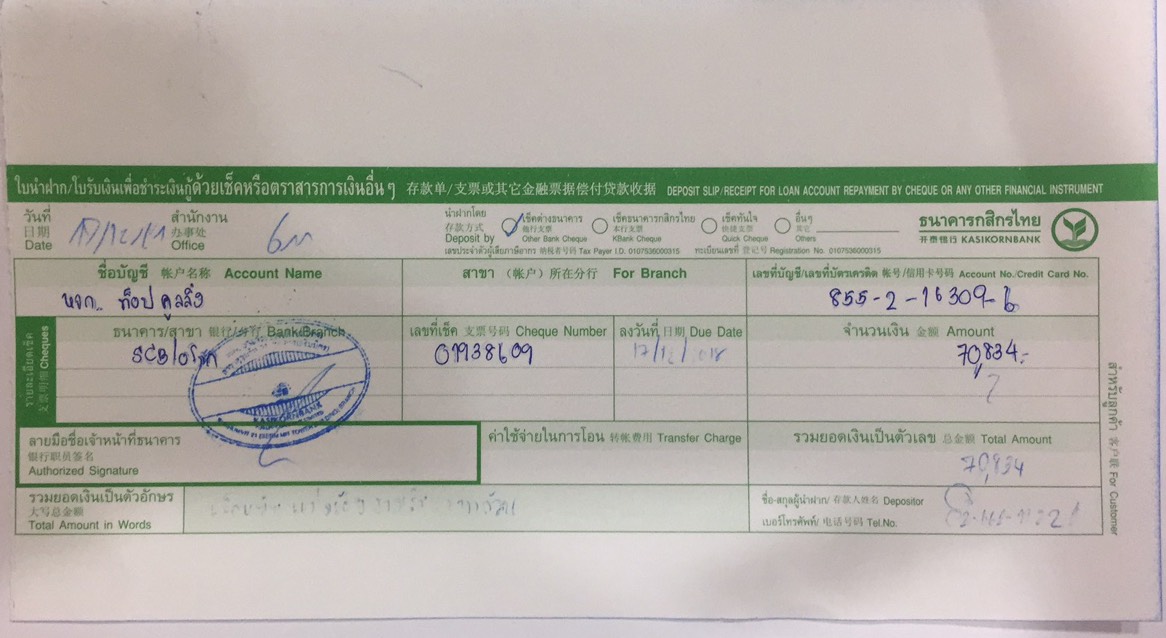 ใบนำฝาก/ใบรับเงินเพื่อชำระเงินกู้ด้วยเช็คหรือตราสารการเงินอื่น ๆ 存款单/支票或其它金融票据偿付贷款收据 DEPOSIT SLIP/RECEIPT FOR LOAN ACCOUNT REPAYMENT BY CHEQUE OR ANY OTHER FINANCIAL INSTRUMENT
วันที่ 日期 Date
สำนักงาน 办事处 Office
นำฝากโดย 存款方式 Deposit by
เช็คต่างธนาคาร 他行支票 Other Bank Cheque
เช็คธนาคารกสิกรไทย 本行支票 KBank Cheque
เช็คทันใจ 快速支票 Quick Cheque
อื่นๆ 其它 Others
เลขประจำตัวผู้เสียภาษีอากร 纳税者号码 Tax Payer I.D. 0107536000315 ทะเบียนเลขที่ 登记号 Registration No. 0107536000315
ธนาคารกสิกรไทย
开泰银行 KASIKORNBANK
ชื่อบัญชี 帐户名称 Account Name
หจก. ท็อป คูลลิ่ง
สาขา (帐户) 所在分行 For Branch
เลขที่บัญชี/เลขที่บัตรเครดิต 帐号/信用卡号码 Account No./Credit Card No.
855-2-16309-6
รายละเอียดเช็ค 支票明细 Cheques
ธนาคาร/สาขา 银行/分行 Bank/Branch
SCB/อโศก
เลขที่เช็ค 支票号码 Cheque Number
01938609
ลงวันที่ 日期 Due Date
17/12/2018
จำนวนเงิน 金额 Amount
70,834.-
KASIKORNBANK
ลายมือชื่อเจ้าหน้าที่ธนาคาร
银行职员签名
Authorized Signature
ค่าใช้จ่ายในการโอน 转帐费用 Transfer Charge
รวมยอดเงินเป็นตัวเลข 总金额 Total Amount
70,834
รวมยอดเงินเป็นตัวอักษร
大写总金额
Total Amount in Words
ชื่อ-สกุลผู้นำฝาก/ 存款人姓名 Depositor
เบอร์โทรศัพท์/ 电话号码 Tel.No.
สำหรับลูกค้า 客户联 For Customer